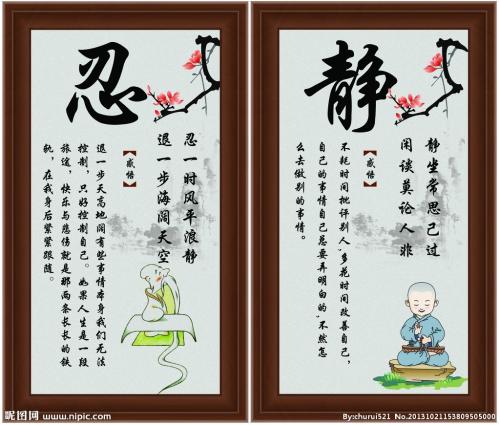 忍
忍一时风平浪静
退一步海阔天空
【感悟】
退一步天高地阔有些事情本身我们无法
控制，只好控制自己。如果人生是一段
旅途，快乐与悲伤就是那两条长长的铁
轨，在我身后紧紧跟随。
静
静坐常思己过
闲谈莫论人非
【感悟】
不耗时间批评别人，多花时间改善自己，
自己的事情自己总要弄明白的，不然怎
么去做别的事情。
昵图网 www.nipic.com
By:churui521 No.20131021153809505000